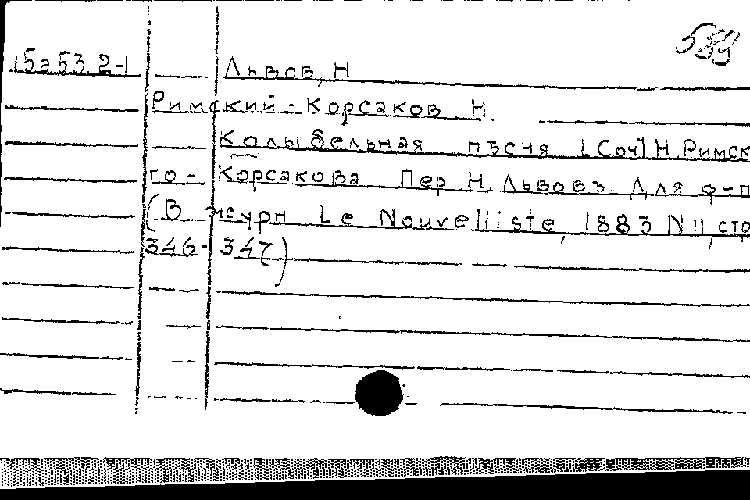 15253 2-1 Львов, Н
Римский-Корсаков Н.
Колыбельная песня [Соч] Н. Римск
го-Корсакова Пер Н. Львова. Для ф-п
(В журн Le Nouvelliste, 1883 N 11, стр
346-347)